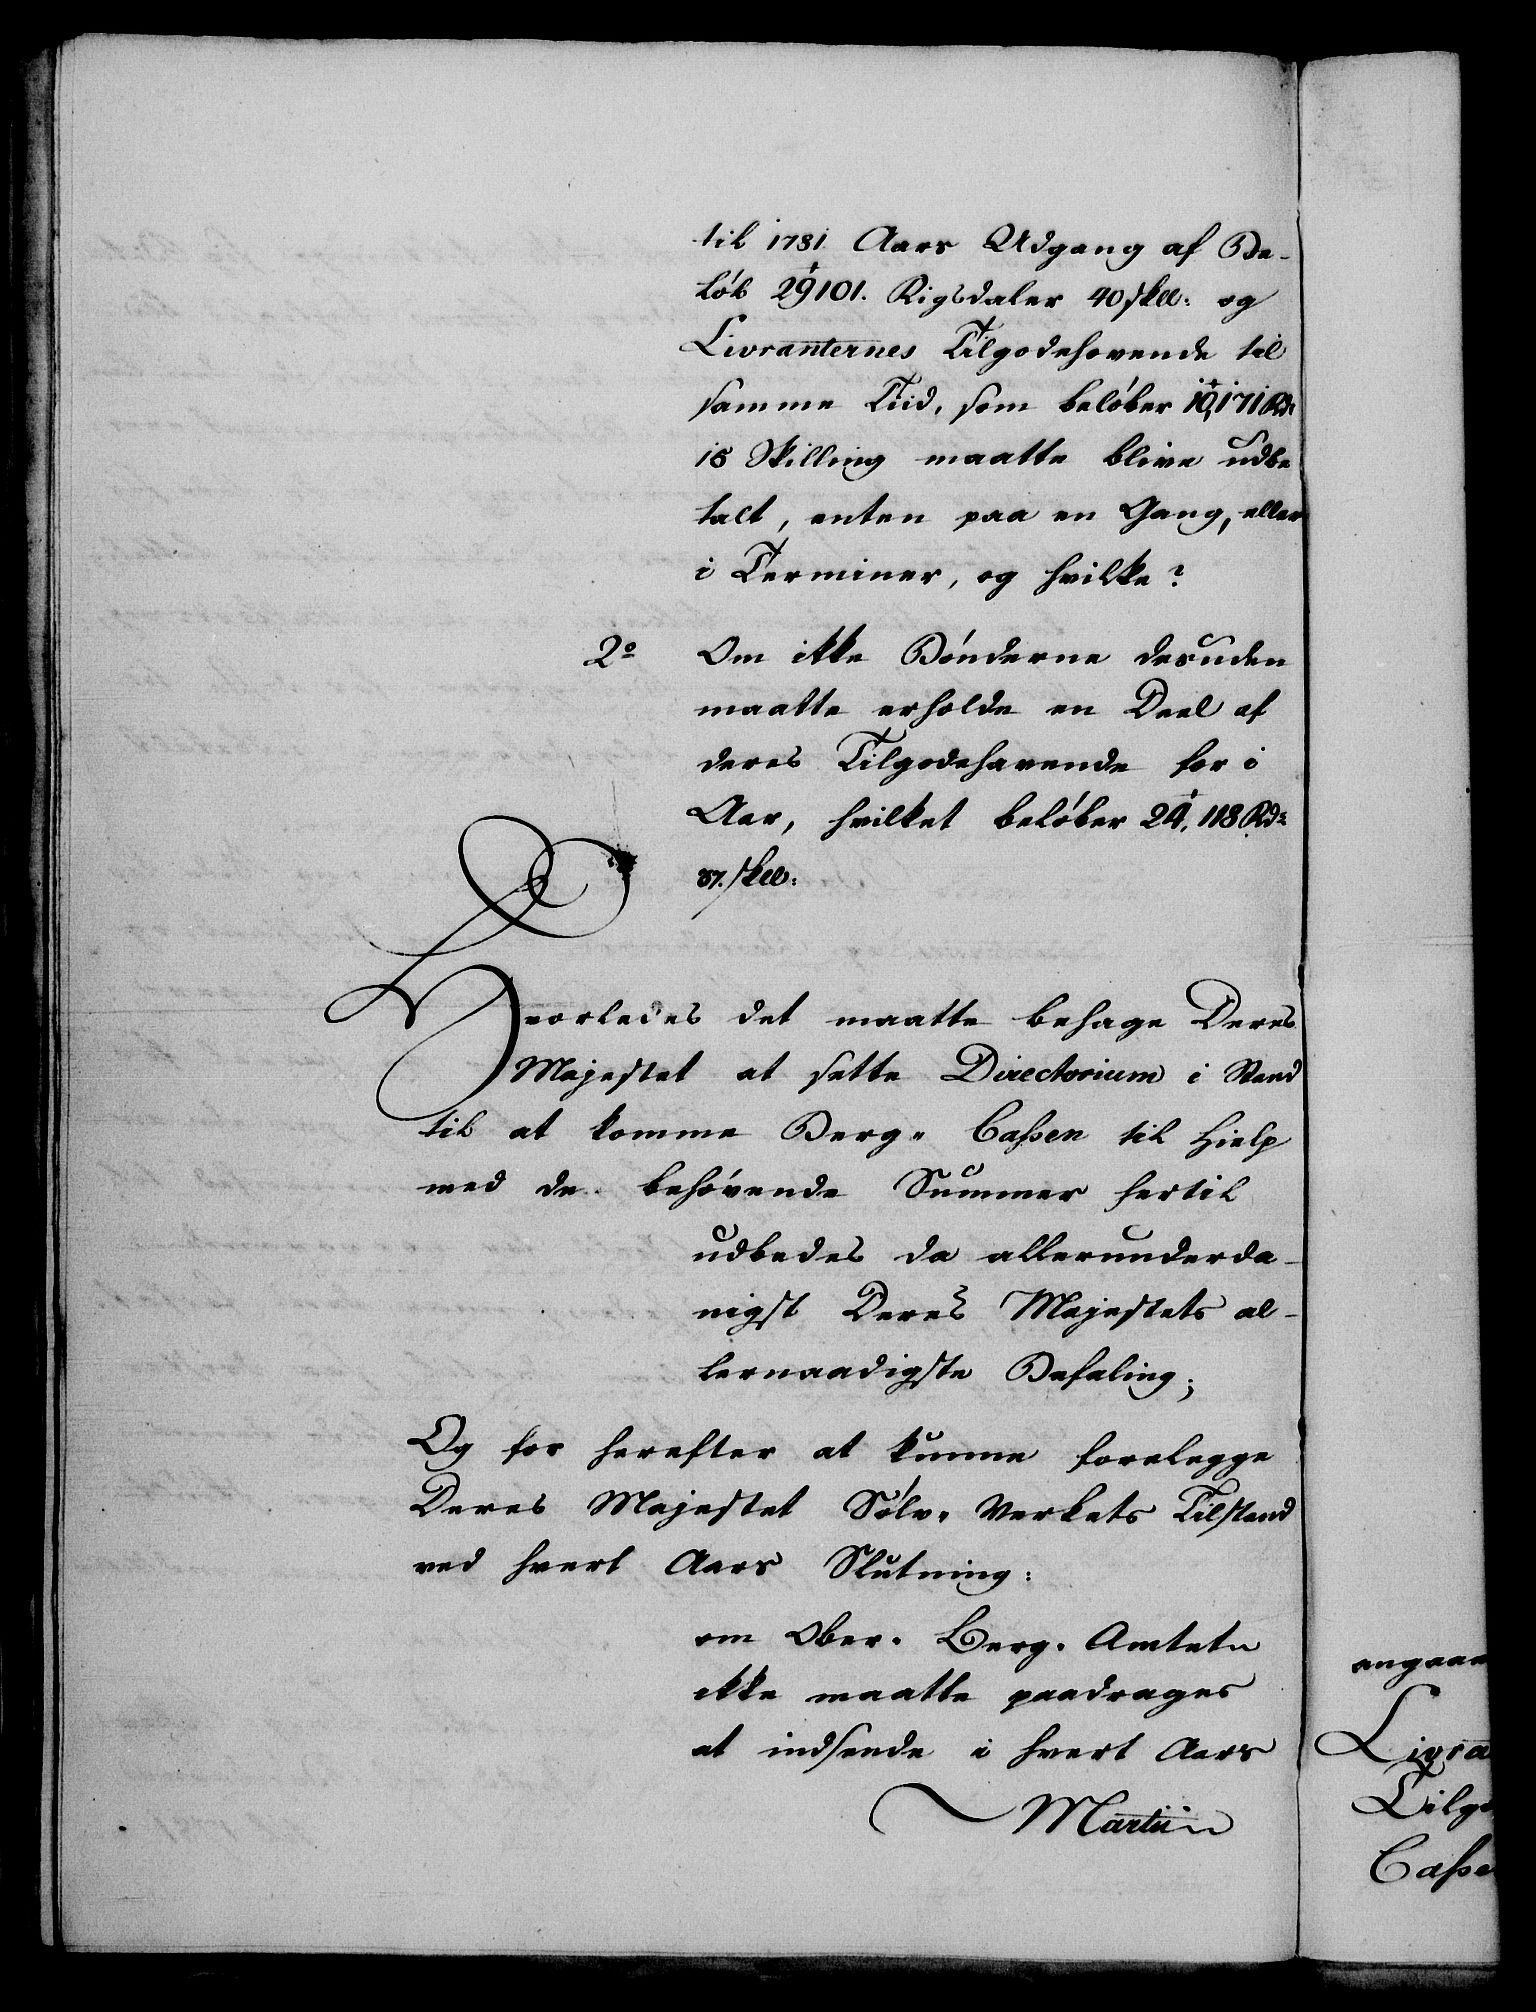 til 1781 Aars Udgang af Be-
löb 29101. Rigsdaler 40 skll: og
Livranternes Tilgodehavende til
samme Tiid, som belöber 10,171 Rd:
15 Skilling maatte blive udbe
talt, enten paa en Gang, eller
i Terminer, og hvilke?
2º Om ikke Bönderne desuden
maatte erholde en Deel af
deres Tilgodehavende for i
Aar, hvilket belöber 24,118 Rd:
87. skll:
Hvorledes det maatte behage Deres
Majestet at sette Directorium i Stand
til at komme Berg- Cassen til Hielp
med de behövende Summer hertil
udbedes da allerunderda-
nigst Deres Majestets al-
lernaadigste Befaling;
Og for herefter at kunne forelegge
Deres Majestet Sölv- Verkets Tilstand
ved hvert Aars Slutning:
om Ober- Berg- Amtet
ikke maatte paadrages
at indsende i hvert Aars
Martii
angaae
Livra
Tilgo
Casse